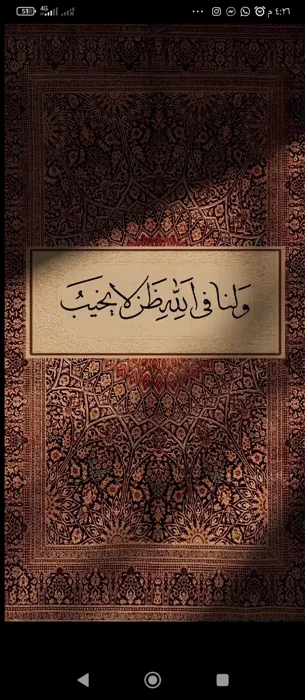 51
4G
٤:٢٦ م
وَلَنا فى اَللهِ ظَن لا يَخيبُ